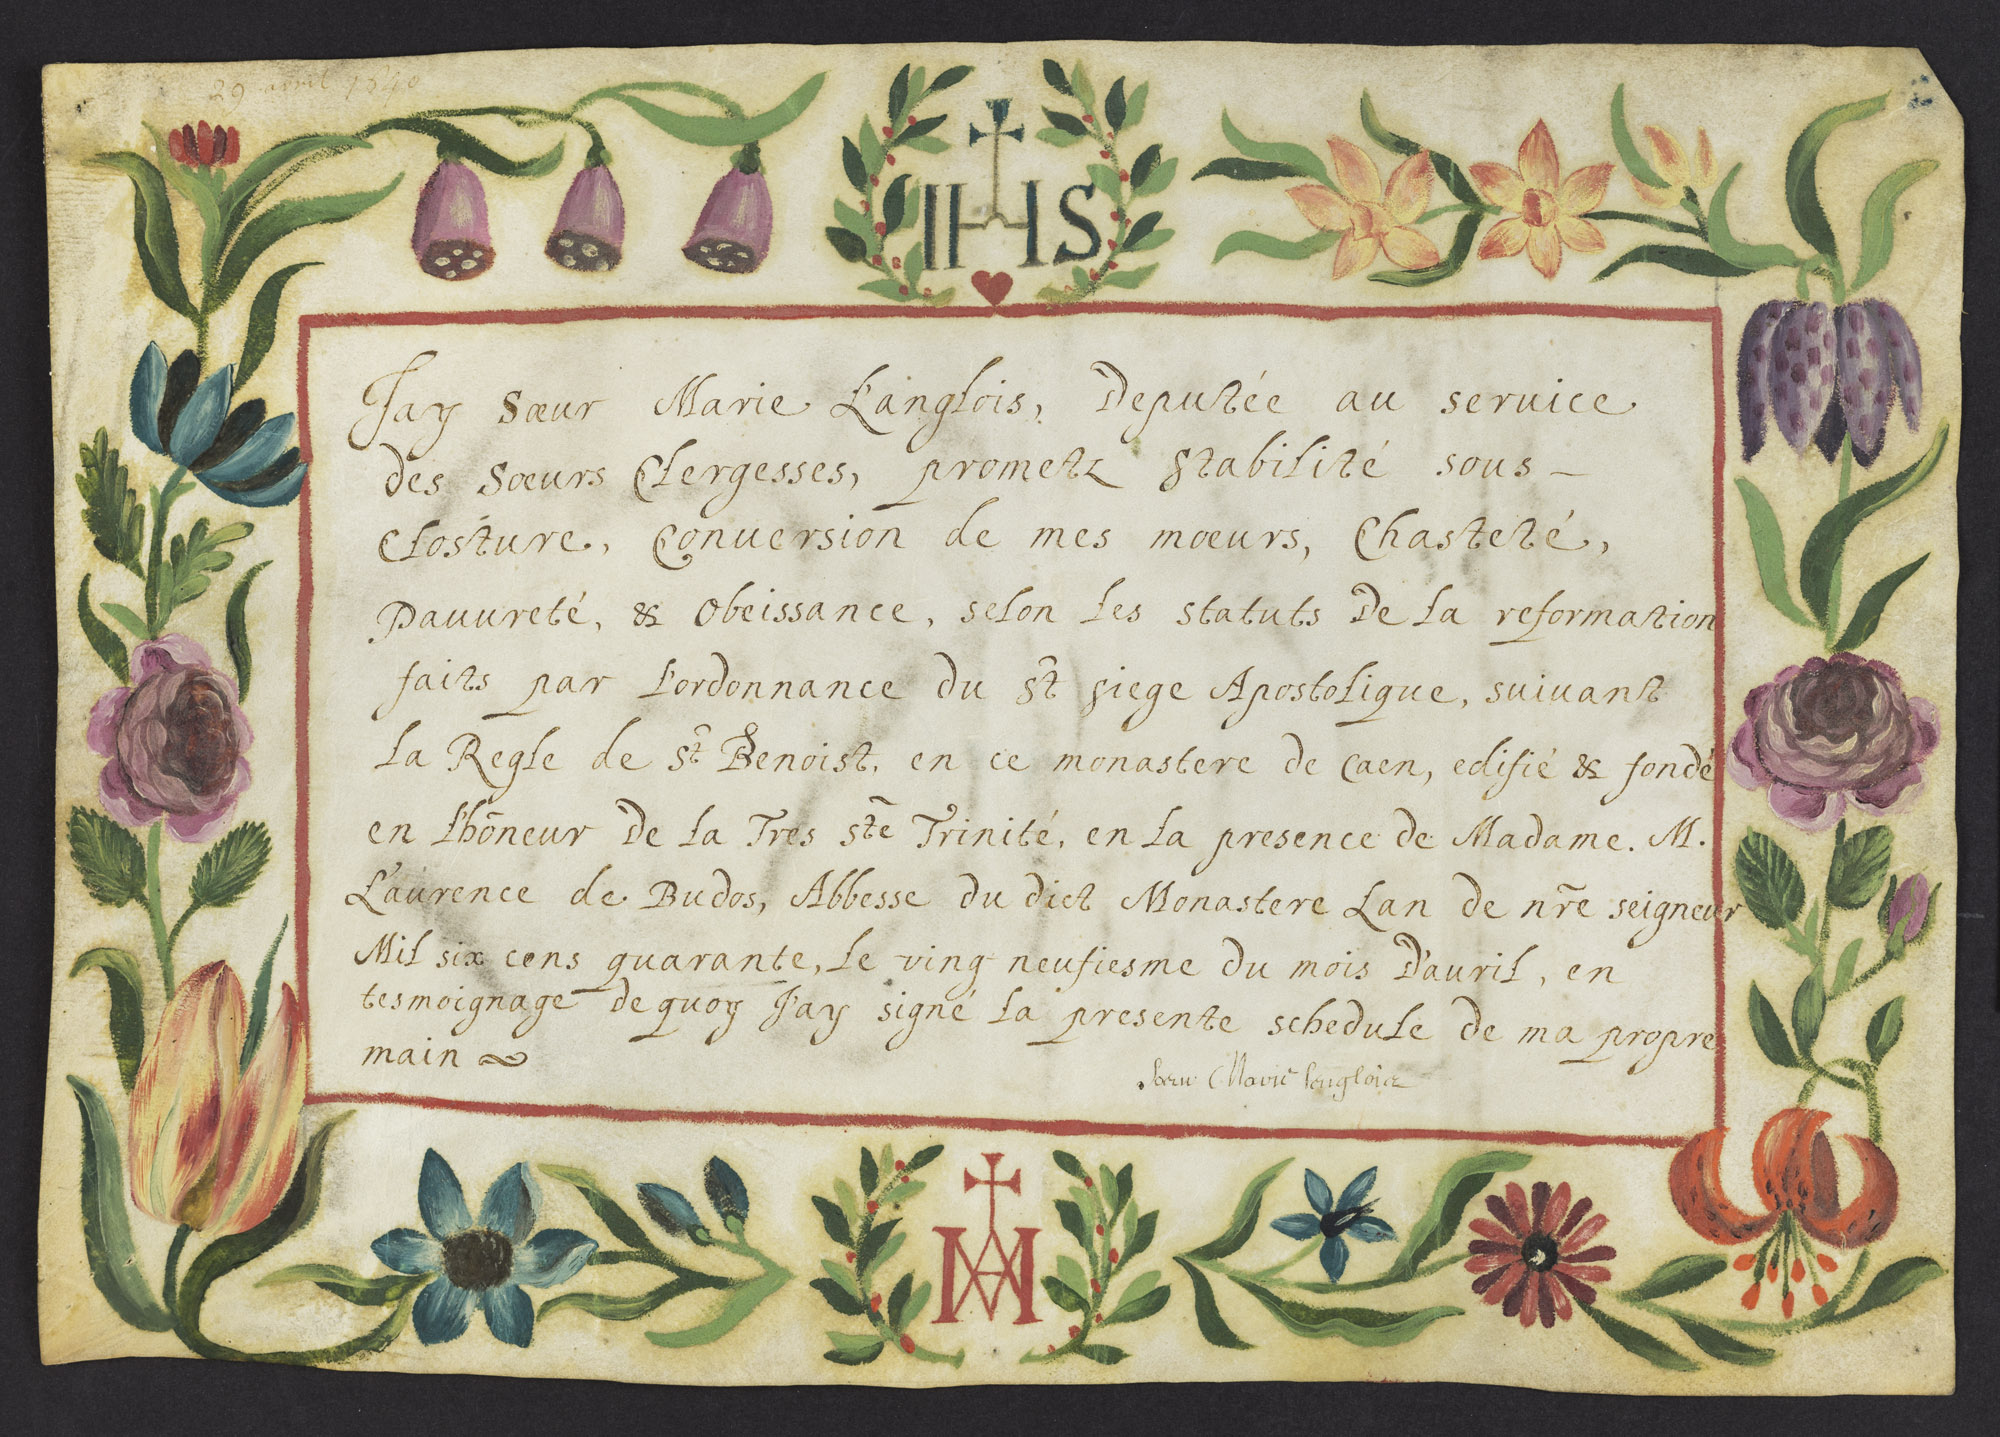 29 avril 1640
IHS
Jay Sœur Marie L'anglois, Deputée au seruice
des Sœurs Clergesses, prometz stabilité sous
closture, Conuersion de mes mœurs, Chasteté,
Pauureté, & Obeissance, selon les statuts De la reformation
faits par l'ordonnance du St siege Apostolique, suiuant
la Regle de St Benoist, en ce monastere de Caen, edifié & fondé
en l'hõneur De la Tres Ste Trinité, en la presence de Madame. M.
L'aurence de Budos, Abbesse du dict Monastere Lan de nr̃e seigneur
Mil six cens quarante, le ving neufiesme du mois D'auril, en
tesmoignage de quoy J'ay signé la presente schedule de ma propre
main
Sœur Marie Lengloiz
MA